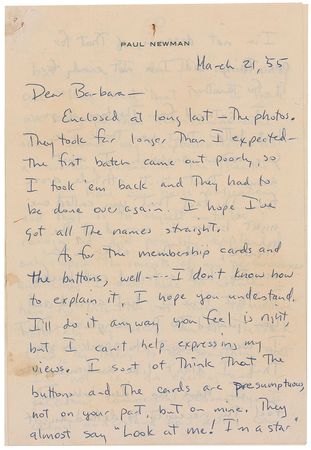 PAUL NEWMAN
March 21, 55
Dear Barbara—
Enclosed at long last — The photos.
They took far longer Than I expected—
The first batch came out poorly, so
I took 'em back and They had to
be done over again. I hope I've
got all The names straight.
As for The membership cards and
the buttons, well---- I don't know how
to explain it, I hope you understand.
I'll do it anyway you feel is right,
but I can't help expressing my
views. I sort of Think That The
buttons and The cards are presumptuous,
not on your part, but on mine. They
almost say "Look at me! I'm a star"